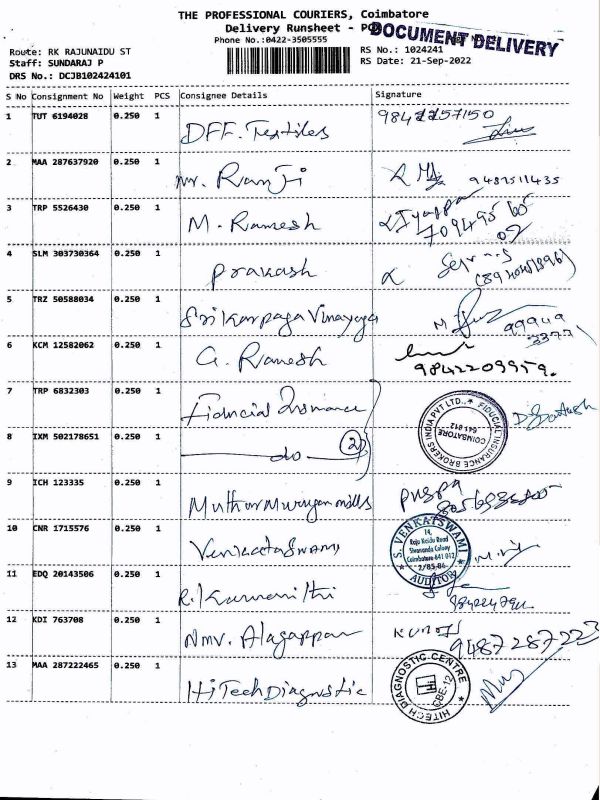 THE PROFESSIONAL COURIERS, Coimbatore
Delivery Runsheet - POD
DOCUMENT DELIVERY
Phone No.:0422-3505555
Route: RK RAJUNAIDU ST
Staff: SUNDARAJ P
DRS No.: DCJB102424101
RS No.: 1024241
RS Date: 21-Sep-2022
S No Consignment No Weight PCS Consignee Details Signature
1 TUT 6194028 0.250 1 DFF. Textiles
2 MAA 287637920 0.250 1 Mr. Ramji
3 TRP 5526430 0.250 1 M. Ramesh
4 SLM 303730364 0.250 1 Prakash
5 TRZ 50588034 0.250 1 Srikarpaga Vinayaga
99949
6 KCM 12582062 0.250 1 G. Ramesh
9842209959.
7 TRP 6832303 0.250 1
FIDUCIAL INSURANCE BROKERS INDIA PVT LTD.,
COIMBATORE
641 012
8 IXM 502178651 0.250 1 do 2
9 ICH 123335 0.250 1 Muthu Murugan mills Puspa
10 CNR 1715576 0.250 1 Venkataswami
S. VENKATSWAMI
14,
Raja Naidu Road
Sivananda Colony
Coimbatore-641 012
AUDITOR
11 EDQ 20143506 0.250 1
12 KDI 763708 0.250 1 Nmv. Alagappan
9487287223
13 MAA 287222465 0.250 1 HiTech Diagnostic
HITECH DIAGNOSTIC CENTRE
CBE-12